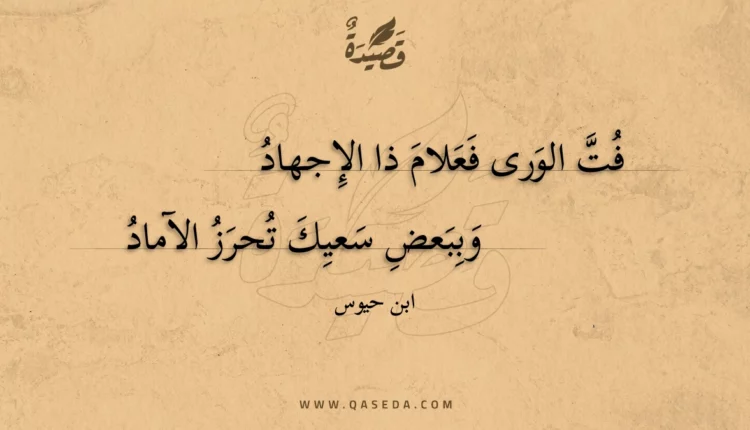 قَصِيْدَةٌ
فُتَّ الوَرى فَعَلامَ ذا الإِجهادُ
وَبِبَعضِ سَعيِكَ تُحرَزُ الآمادُ
ابن حيوس
WWW.QASEDA.COM